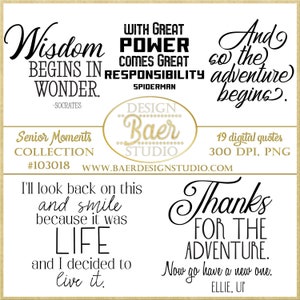 Wisdom
BEGINS IN
WONDER.
-SOCRATES
WITH GREAT
POWER
COMES GREAT
RESPONSIBILITY
SPIDERMAN
And
so the
adventure
begins.
Senior Moments
COLLECTION
#103018
DESIGN
Baer
STUDIO
19 digital quotes
300 DPI, PNG
WWW.BAERDESIGNSTUDIO.COM
I'll look back on this
and smile
because it was
LIFE
and I decided to
live it.
Thanks
FOR THE
ADVENTURE.
Now go have a new one.
ELLIE, UP